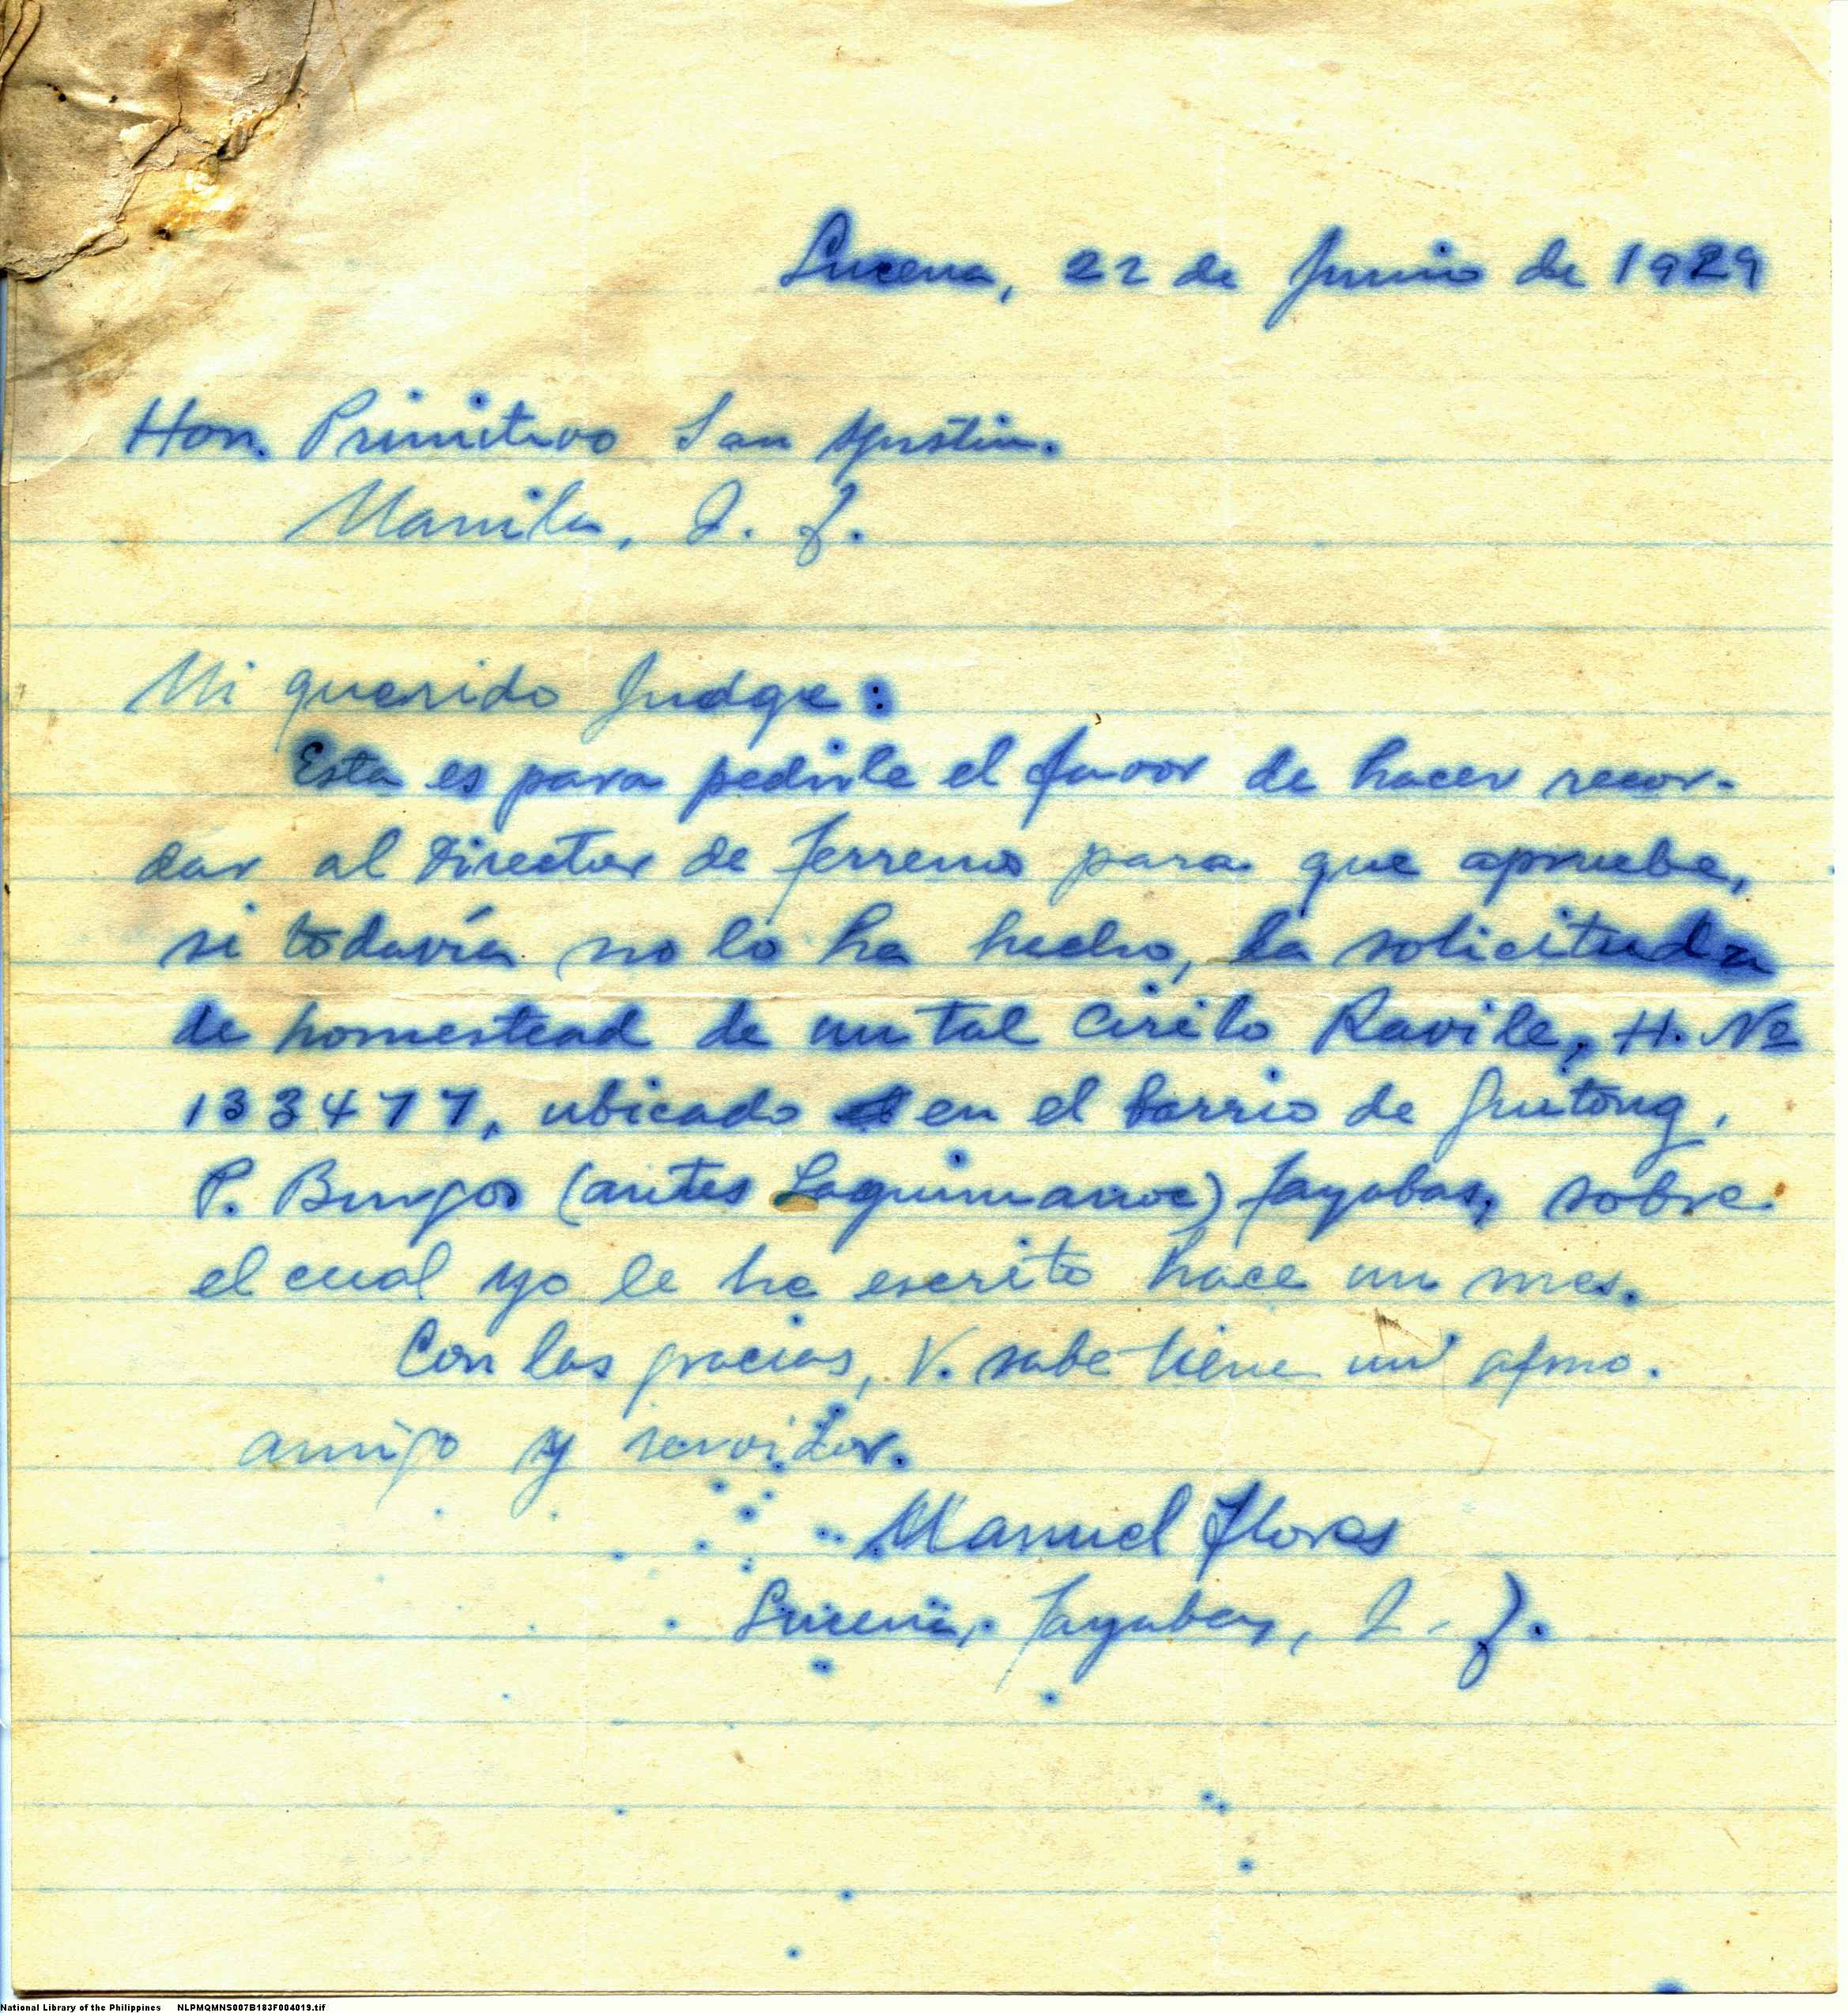 Lucena, 22 de Junio de 1929
Hon. Primitivo San Agustin.
Manila, I. F.
Mi querido Judge:
Esta es para pedirle el favor de hacer recor-
dar al Director de Terrenos para que apruebe,
si todavía no lo ha hecho, la solicitud
de homestead de un tal Cirilo Ravile, H. Nº
133477, ubicado en el barrio de
P. Burgos (antes Laguimanoc) Tayabas, sobre
el cual yo le he escrito hace un mes.
Con las gracias, V. sabe tiene un afmo.
amigo y servidor.
Manuel Flores
Lucena, Tayabas, I. F.
National Library of the Philippines NLPMQMNS007B183F004019.tif